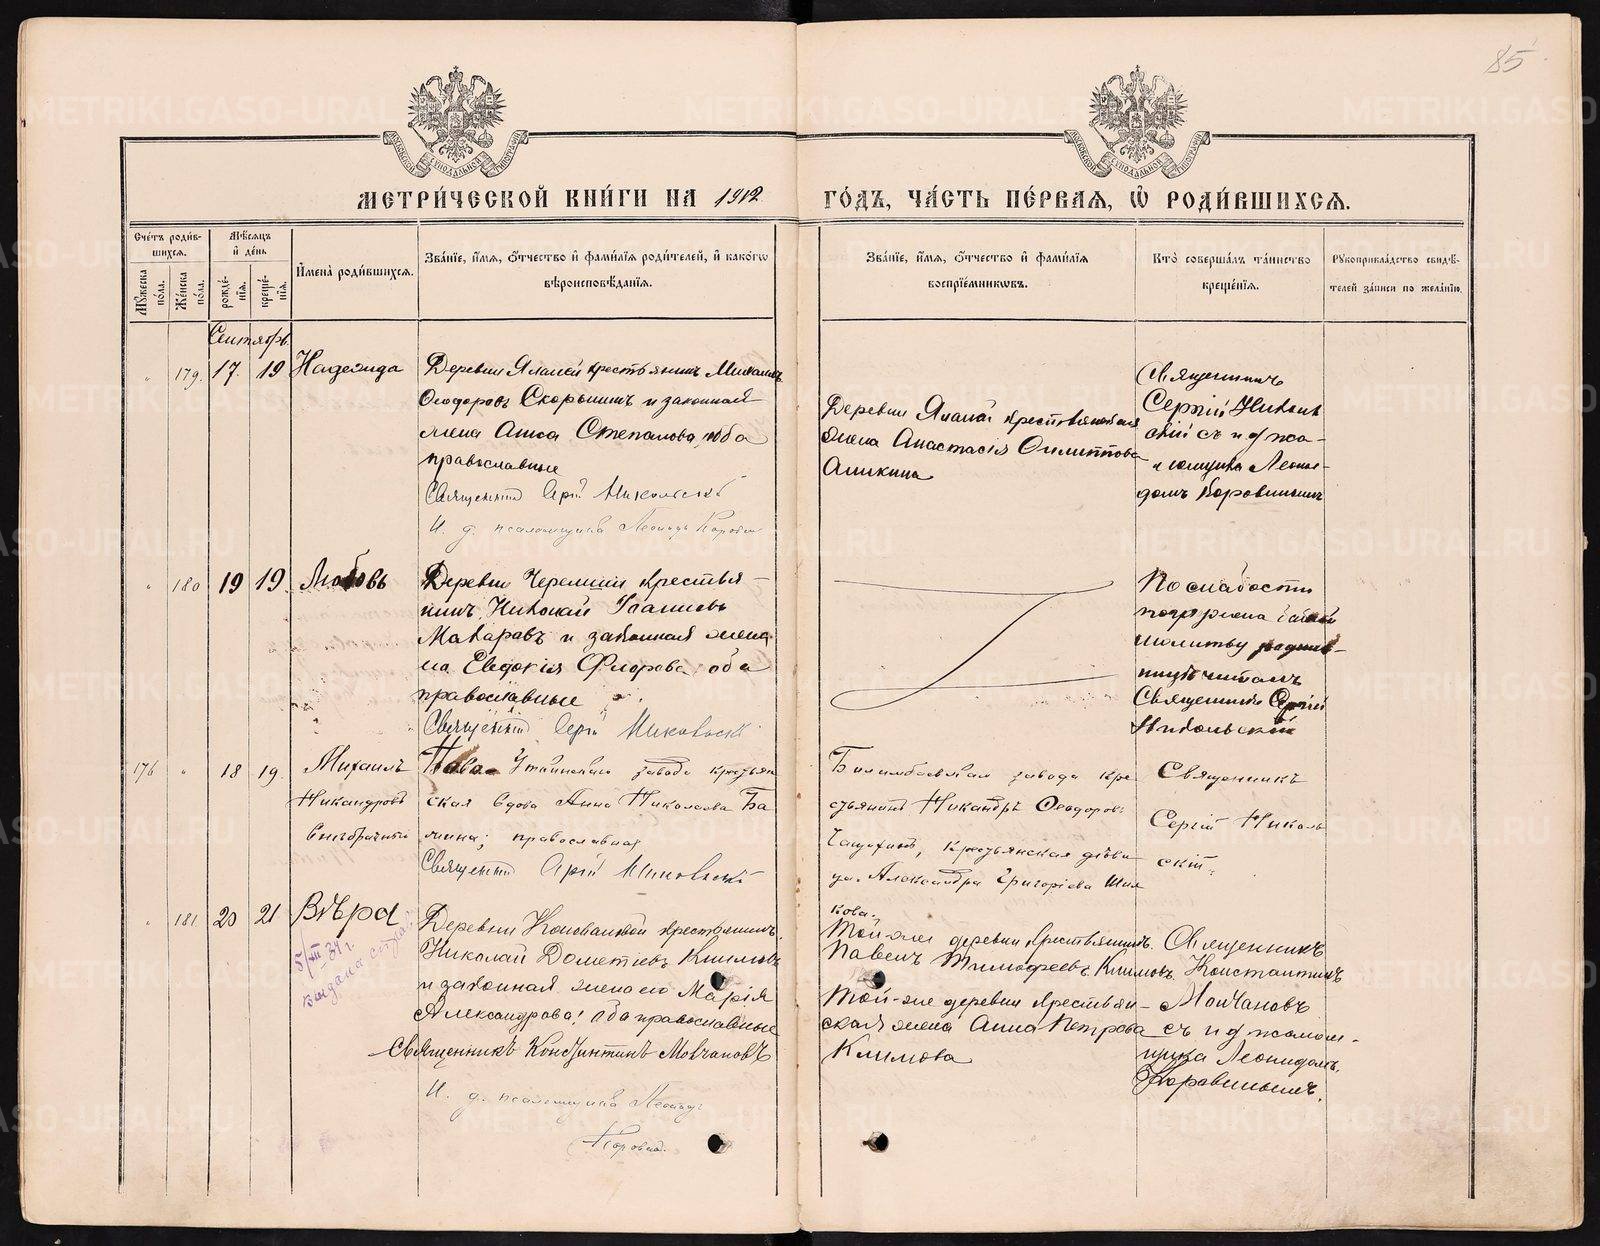 85
МЕТРИ́ЧЕСКОЙ КНИ́ГИ НА 1912
ГО́ДЪ, ЧА́СТЬ ПЕ́РВАЯ, Ѡ҆ РОДИ́ВШИХСЯ.
Сче́тъ роди́в-
шихся.
Мѣ́сяцъ
и҆ де́нь
Мꙋ́жеска
по́ла.
Же́нска
по́ла.
рожде́-
нїя.
креще́-
нїя.
И҆мена̀ роди́вшихся.
Зва́нїе, и҆́мя, ѻ҆́тчество и҆ фами́лїя роди́телей, и҆ како́гѡ
вѣроисповѣ́данїя.
Зва́нїе, и҆́мя, ѻ҆́тчество и҆ фами́лїя
воспрїе́мникѡвъ.
Кто̀ соверша́лъ та́инство
креще́нїя.
Рꙋкоприкла́дство свидѣ́-
телей за́писи по жела́нїю.
Сентябрь.
179. 17. 19 Надежда
Деревни крестьянинъ Михаилъ
Ѳеодоровъ Скорынинъ и законная
жена Анна Степанова, оба
православные
Священникъ Сергій Никольскій
И. д. псаломщика Леонидъ Коровинъ
Деревни крестьянская
жена Анастасія Филиппова
Аникина
Священникъ
Сергій Николь
скій съ и д псало-
мщика Леони-
домъ Коровинымъ
180 19 19. Любовь
Деревни Черемши крестья-
нинъ Николай Іоанновъ
Макаровъ и законная жена
Евдокія Флорова оба
православные
Священникъ Сергій Никольскій
По слабости
погружена бабкой
молитву
читалъ
Священникъ Сергій
Никольскій
176 18 19. Михаилъ
Никандровъ
внебрачный
Уткинскаго завода крестьян
ская вдова Анна Николаева Ба
жина; православная
Священникъ Сергій Никольскій
Билимбаевскаго завода кре
стьянинъ Никандръ Ѳеодоровъ
крестьянская дѣви
ца Александра Григоріева Шил
кова.
Священникъ
Сергій Николь
скій.
181. 20 21 Вѣра
5/III-34 г.
выдана справка
Деревни Коноваловой крестьянинъ
Николай Дометіевъ Климовъ
и законная жена его Марія
Александрова; оба православные
Священникъ Константинъ Молчановъ
И. д. псаломщика Леонидъ
Коровинъ.
Той-же деревни крестьянинъ
Павелъ Тимофеевъ Климовъ.
Той-же деревни крестьян-
ская жена Анна Петрова
Климова
Священникъ
Константинъ
Молчановъ
съ и д псалом-
щика Леонидомъ
Коровинымъ.